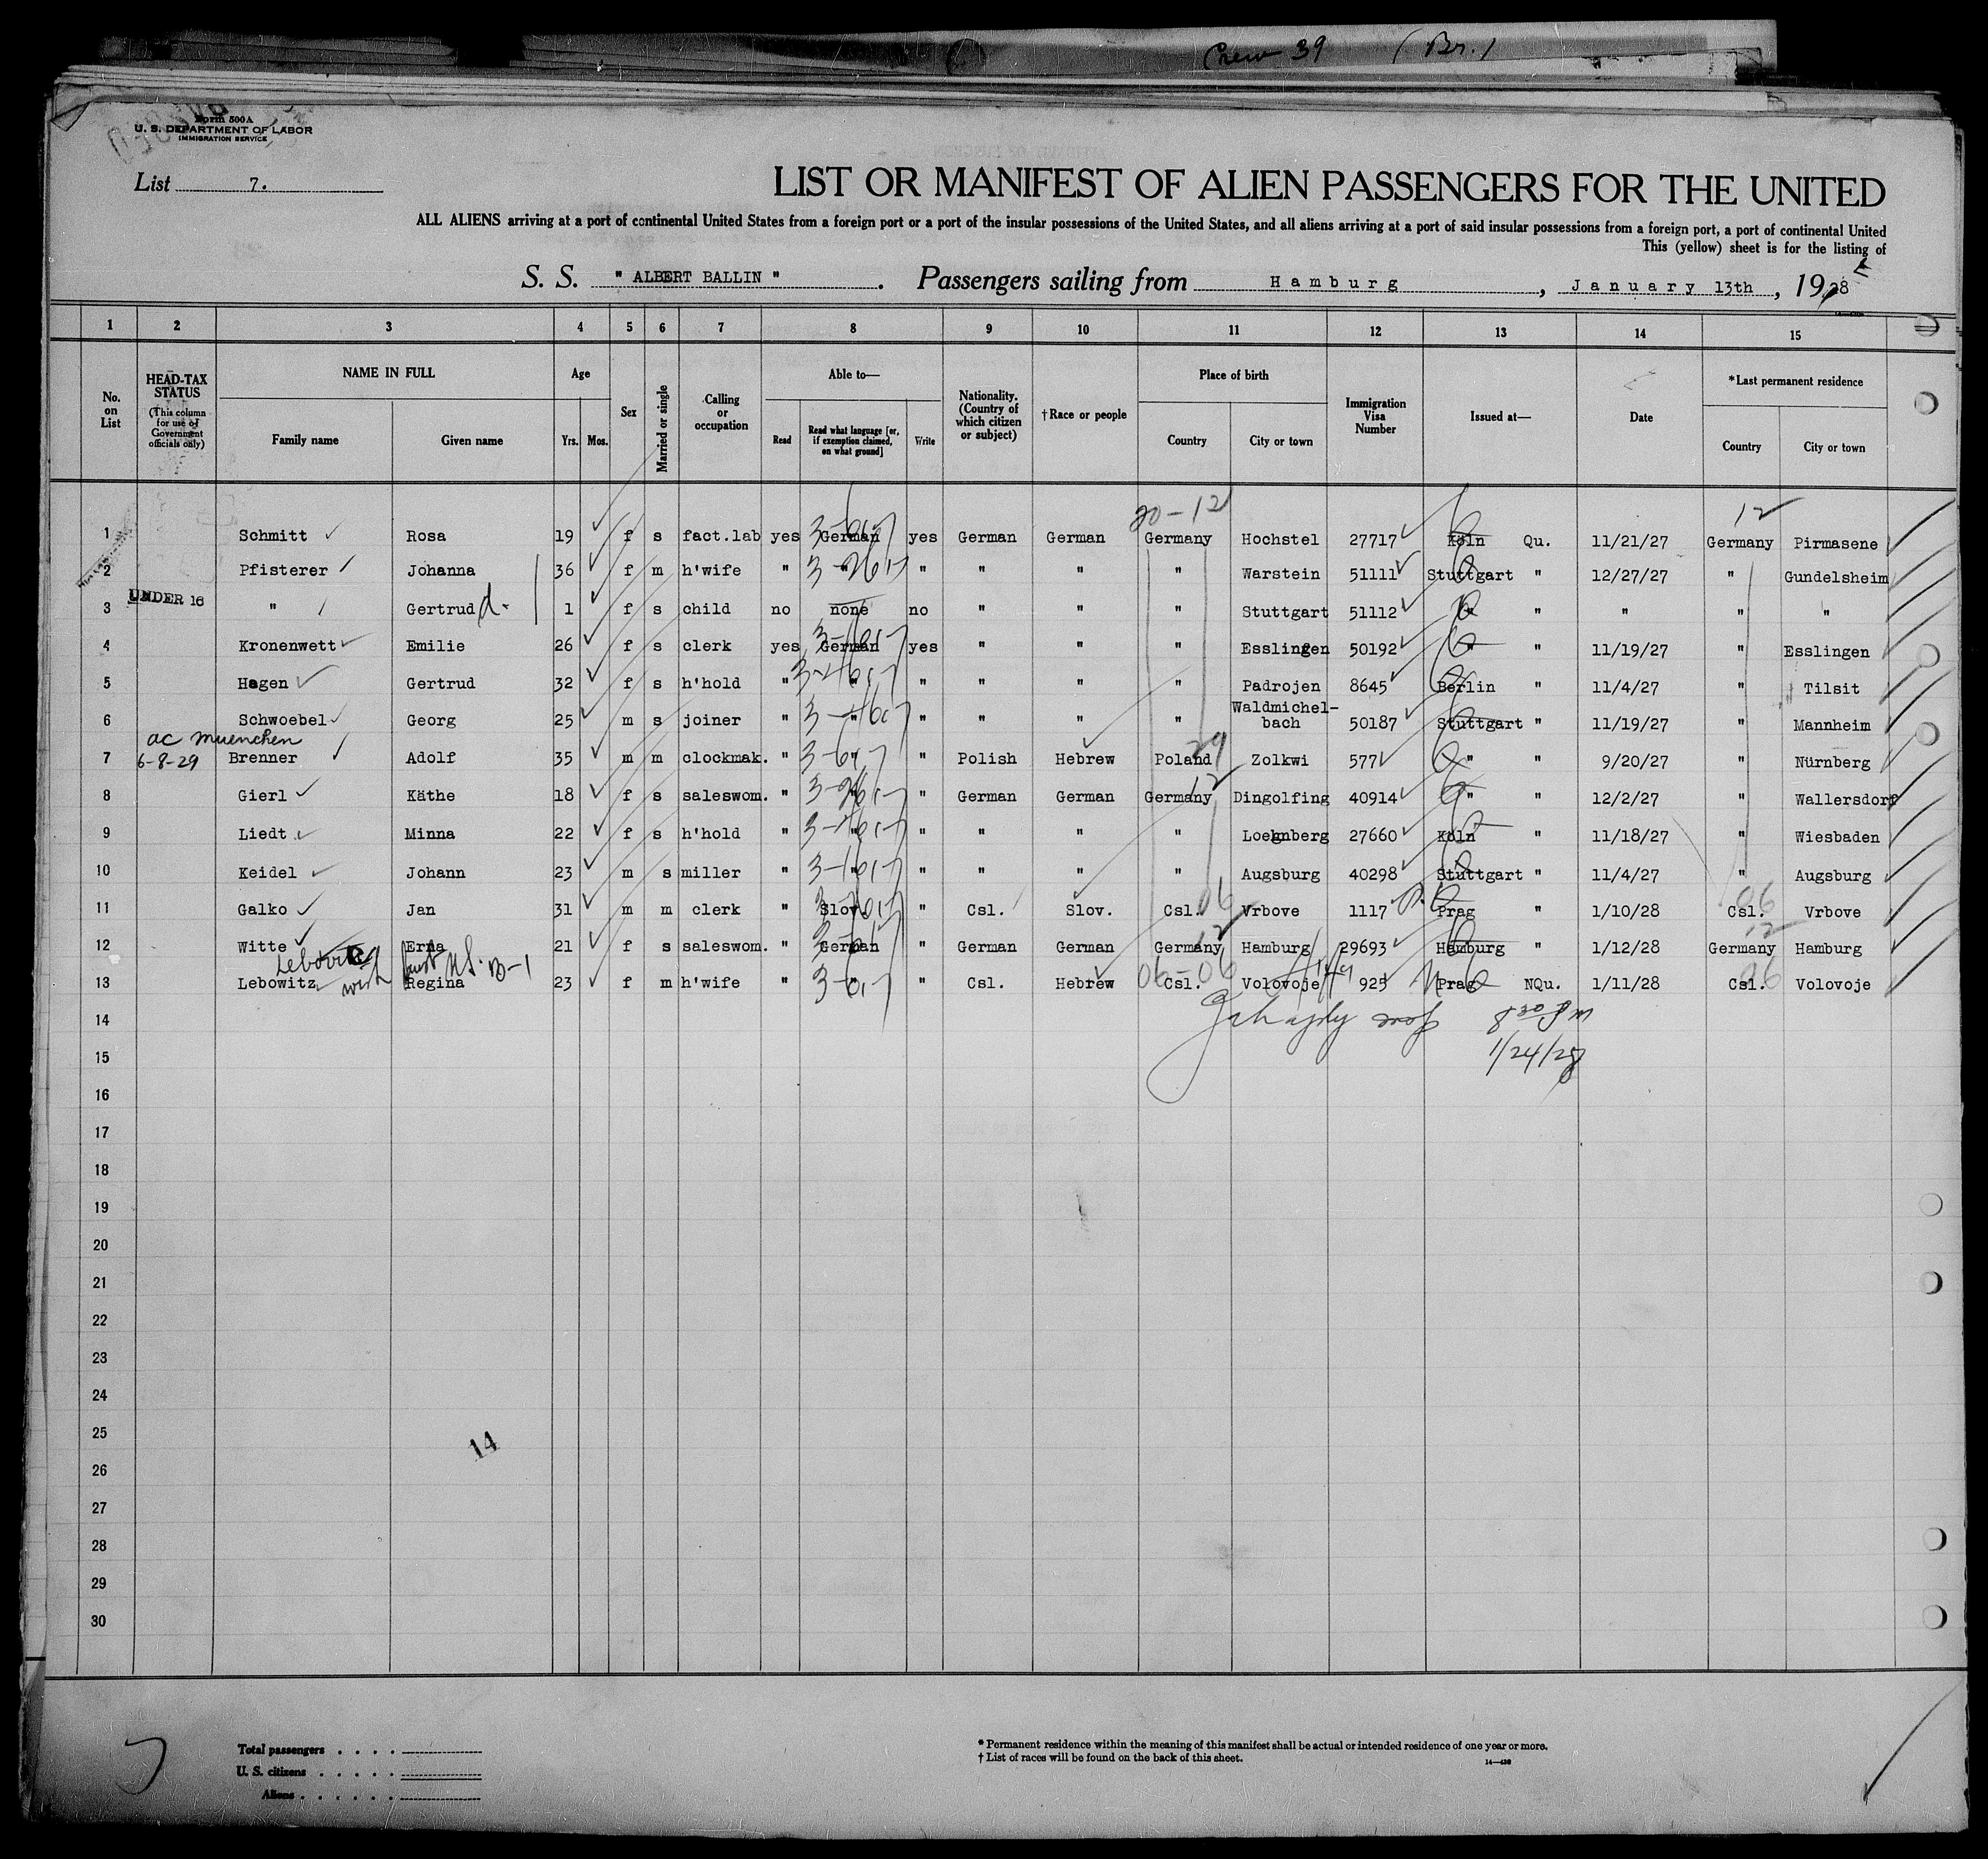 Crew 39 (Br.)
Form 500A
U. S. DEPARTMENT OF LABOR
IMMIGRATION SERVICE
List 7.
LIST OR MANIFEST OF ALIEN PASSENGERS FOR THE UNITED
ALL ALIENS arriving at a port of continental United States from a foreign port or a port of the insular possessions of the United States, and all aliens arriving at a port of said insular possessions from a foreign port, a port of continental United
This (yellow) sheet is for the listing of
S. S. " ALBERT BALLIN ". Passengers sailing from Hamburg, January 13th, 1928
1 2 3 4 5 6 7 8 9 10 11 12 13 14 15
No. on List
HEAD-TAX STATUS (This column for use of Government officials only)
NAME IN FULL
Family name Given name
Age
Yrs. Mos.
Sex
Married or single
Calling or occupation
Able to—
Read
Read what language [or, if exemption claimed, on what ground]
Write
Nationality. (Country of which citizen or subject)
†Race or people
Place of birth
Country City or town
Immigration Visa Number
Issued at—
Date
*Last permanent residence
Country City or town
20-12 12
1 Schmitt Rosa 19 f s fact.lab yes German yes German German Germany Hochstel 27717 Köln Qu. 11/21/27 Germany Pirmasene
2 Pfisterer Johanna 36 f m h'wife " " " " " " Warstein 51111 Stuttgart " 12/27/27 " Gundelsheim
UNDER 16
3 " Gertrud d. 1 f s child no none no " " " Stuttgart 51112 " " " " "
4 Kronenwett Emilie 26 f s clerk yes German yes " " " Esslingen 50192 " " 11/19/27 " Esslingen
5 Hagen Gertrud 32 f s h'hold " " " " " " Padrojen 8645 Berlin " 11/4/27 " Tilsit
6 Schwoebel Georg 25 m s joiner " " " " " " Waldmichel-bach 50187 Stuttgart " 11/19/27 " Mannheim
ac Muenchen
6-8-29
7 Brenner Adolf 35 m m clockmak. " " " Polish Hebrew Poland Zolkwi 577 " " 9/20/27 " Nürnberg
8 Gierl Käthe 18 f s saleswom. " " " German German Germany Dingolfing 40914 " " 12/2/27 " Wallersdorf
9 Liedt Minna 22 f s h'hold " " " " " " 27660 Köln " 11/18/27 " Wiesbaden
10 Keidel Johann 23 m s miller " " " " " " Augsburg 40298 Stuttgart " 11/4/27 " Augsburg
11 Galko Jan 31 m m clerk " Slov. " Csl. Slov. Csl. Vrbove 1117 Prag " 1/10/28 Csl. Vrbove
12 Witte Erna 21 f s saleswom. " German " German German Germany Hamburg 29693 Hamburg " 1/12/28 Germany Hamburg
13 Lebowitz Regina 23 f m h'wife " " " Csl. Hebrew Csl. Volovoje 925 Prag NQu. 1/11/28 Csl. Volovoje
14
1/24/28
15
16
17
18
19
20
21
22
23
24
25
14
26
27
28
29
30
Total passengers . . . .
U. S. citizens . . . . .
Aliens . . . . . .
* Permanent residence within the meaning of this manifest shall be actual or intended residence of one year or more.
† List of races will be found on the back of this sheet.